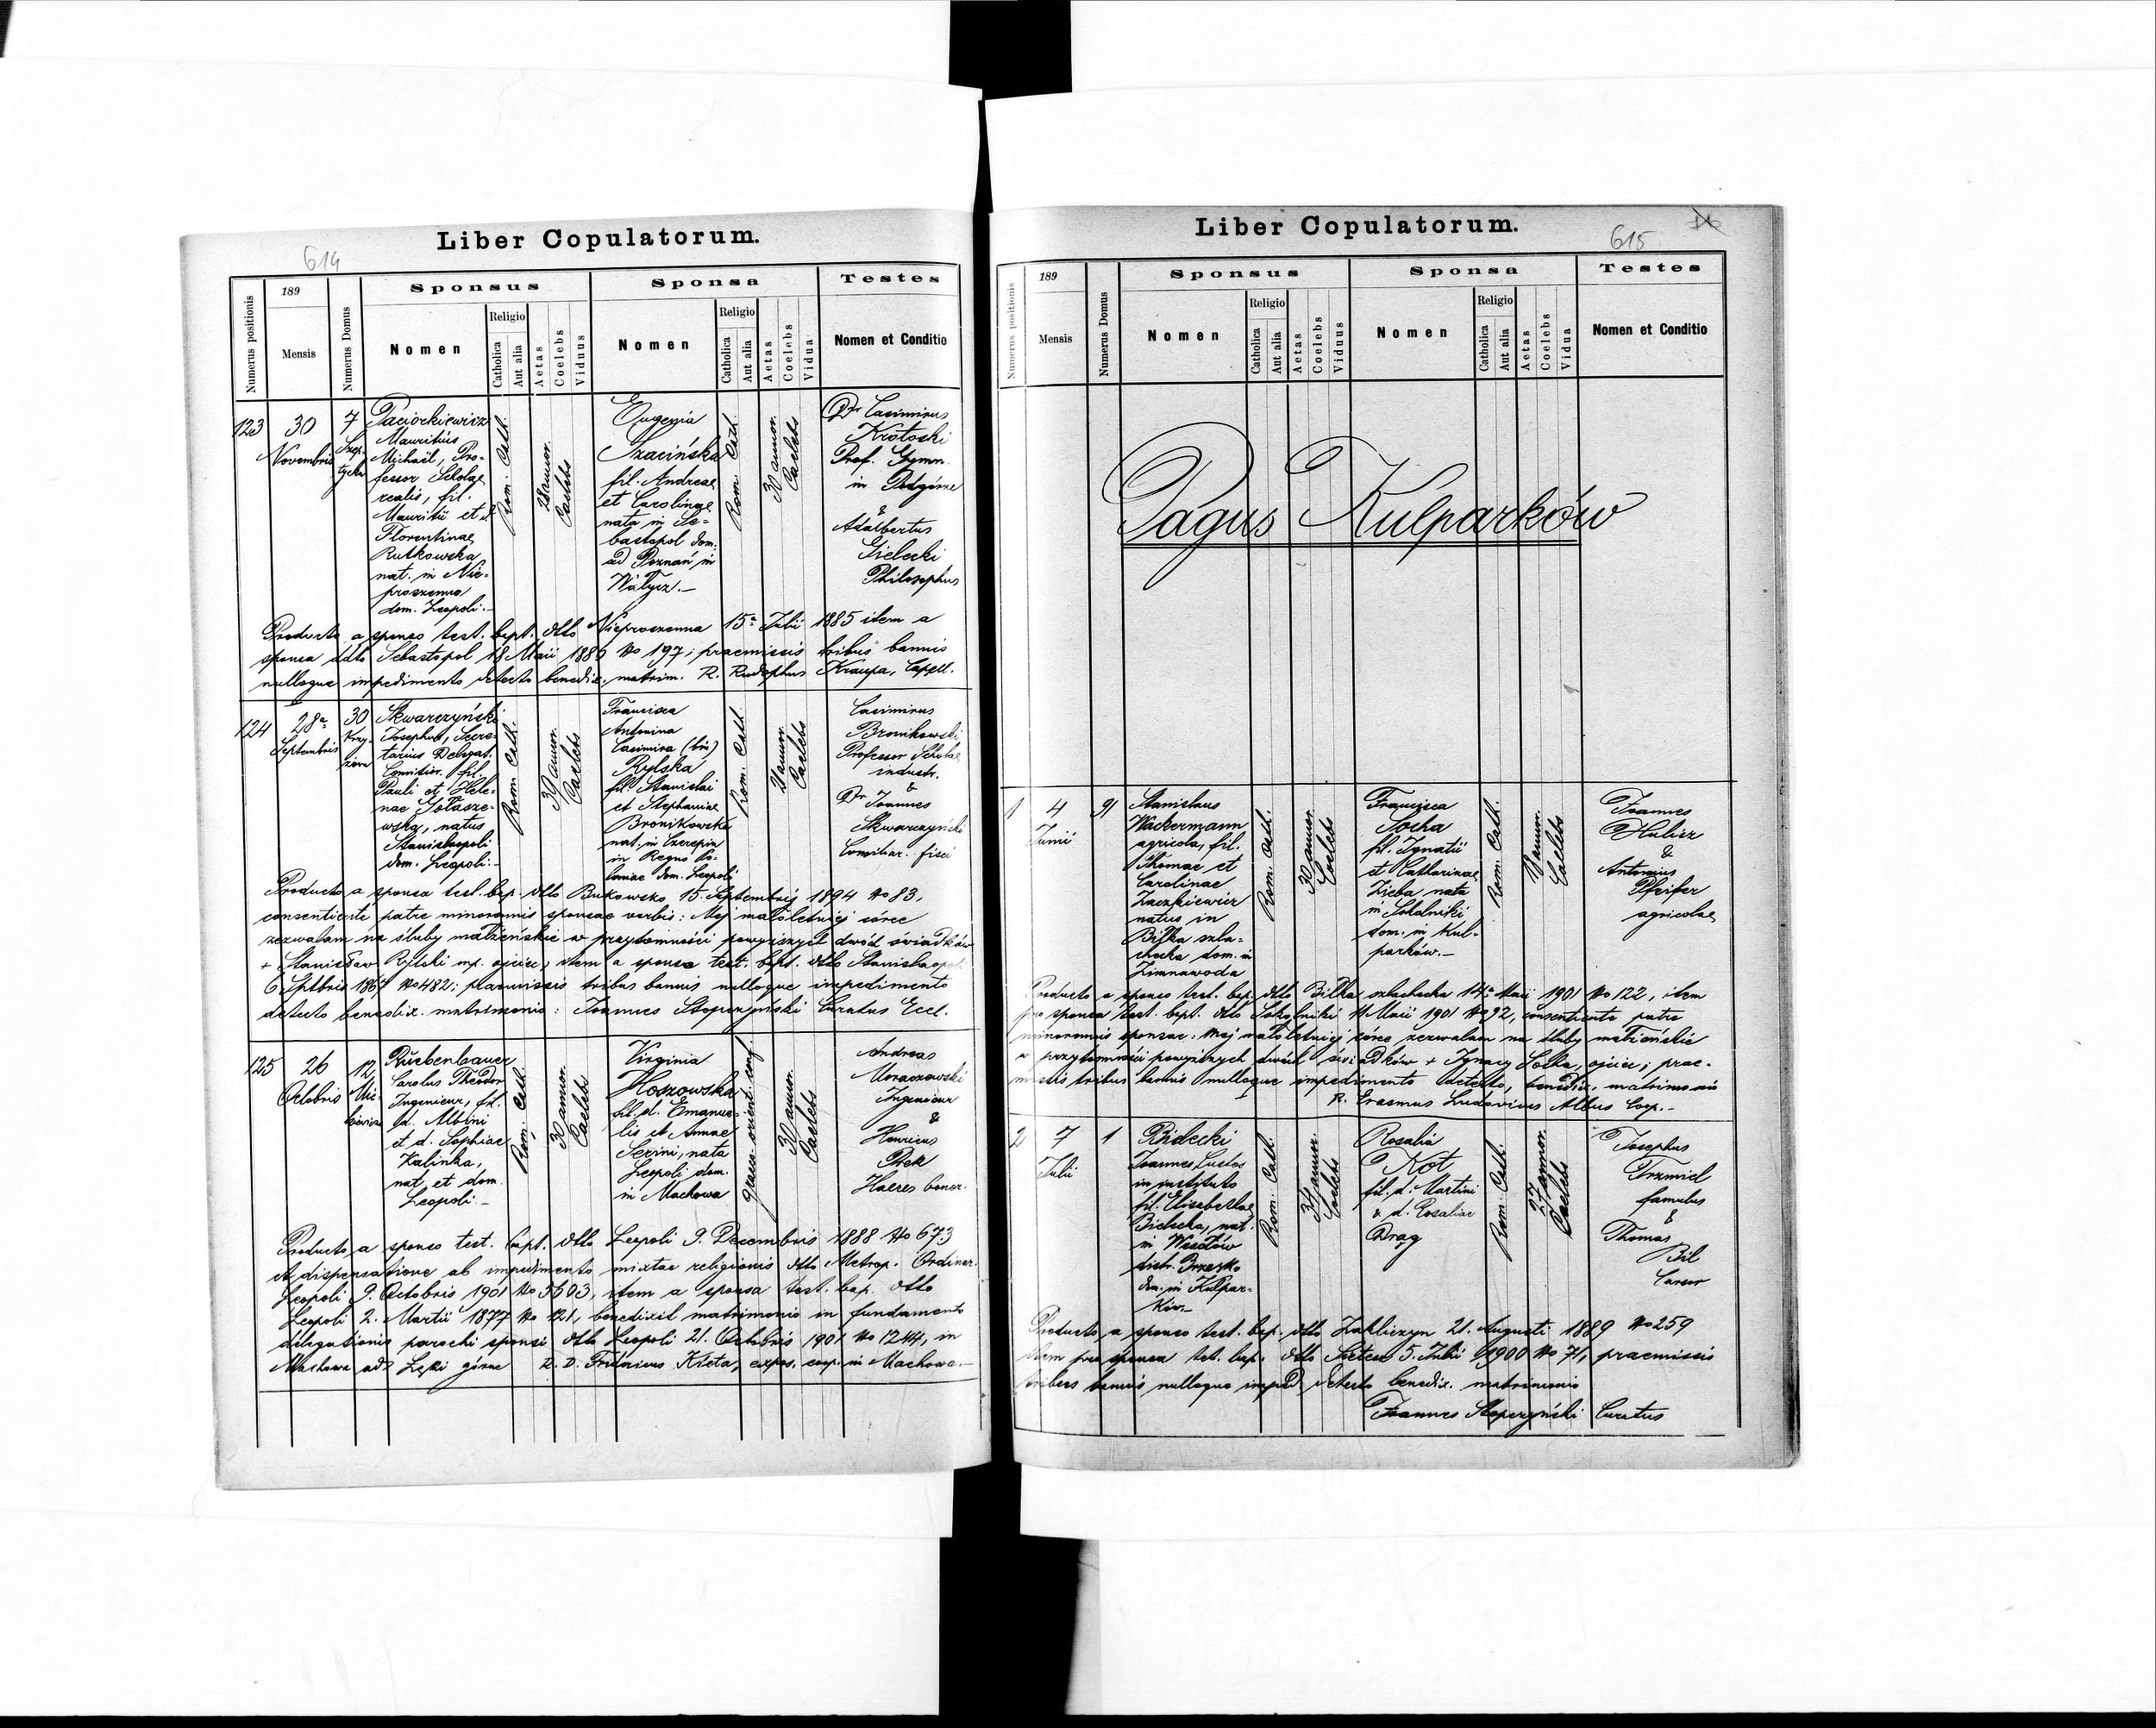 Liber Copulatorum.
614
Numerus positionis
189
Mensis
Numerus Domus
Sponsus
Nomen
Religio
Catholica
Aut alia
Aetas
Coelebs
Viduus
Sponsa
Nomen
Religio
Catholica
Aut alia
Aetas
Coelebs
Vidua
Testes
Nomen et Conditio
123
30
Novembris
7
Szep-
tycka
Paciorkiewicz
Mauritius
Michaël, Pro-
fessor Scholae
realis, fil.
Mauritii et d.
Florentinae
Rutkowska
nat. in Nie-
proszenna
dom. Leopoli.-
Rom. Cath.
28 annor.
Caelebs
Eugenia
Szacińska
fil. Andreae
et Carolinae
nata in Se-
bastopol dom.
ad Poznań in
Rom. Cath.
30 annor.
Caelebs
Dr Casimirus
Krotoski
Prof. Gymn.
in Podgórze
&
Adalbertus
Gielecki
Philosophus
Producto a sponso test. bapt. dtto Nieproszenna 15a Julii 1885 item a
sponsa ddto Sebastopol 18 Maii 1889 No 197; praemissis tribus bannis
nulloque impedimento detecto benedix. matrim. R. Rudolphus Kraupa, Capell.
124
28a
Septembris
30
Skwarczyński
Josephus, Secre-
tarius Delegat.
fil.
Pauli et Hele-
nae Gołasze-
wska, natus
Stanislaopoli
dom. Leopoli.-
Rom. Cath.
39 annor.
Caelebs
Francisca
Antonina
Casimira (bin)
Rylska
fil. Stanislai
et Stephaniae
Bronikowska
nat. in Czerepin
in Regno Po-
loniae dom. Leopoli
Rom. Cath.
21 annor.
Caelebs
Casimirus
Bronikowski
Professor Scholae
industr.
&
Dr Joannes
Skwarczyński
Consiliar. fisci
Producto a sponsa test. bap. dtto Bukowsko 15. Septembrij 1894 No 83,
consentiente patre minorennis sponsae verbis: Mej małoletniej córce
zezwalam na śluby małżeńskie w przytomności powyższych dwóch świadków
+ Stanisław Rylski mp. ojciec; item a sponso test. bapt. dtto Stanislaopoli
6 Septbris 1864 No 482; praemissis tribus bannis nulloque impedimento
detecto benedix. matrimonio: Joannes Stopczyński Curatus Eccl.
125
26
Octobris
12
Ruebenbauer
Carolus Theodor
Ingenieur, fil.
d. Albini
et d. Sophiae
Kalinka,
nat. et dom.
Leopoli.-
Rom. Cath.
30 annor.
Caelebs
Virginia
Hoszowska
fil. d. Emanue-
lis et Annae
Serini, nata
Leopoli dom.
in Machowa
graeco-orient. conf.
30 annor.
Caelebs
Andreas
Moraczewski
Ingenieur
&
Henricus
Haeres bonor.
Producto a sponso test. bapt. dtto Leopoli 9. Decembris 1888 No 673
et dispensatione ab impedimento mixtae religionis dtto Metrop. Ordinar.
Leopoli 9. Octobris 1901 No 5603, item a sponsa test. bap. dtto
Leopoli 2. Martii 1877 No 121, benedixit matrimonio in fundamento
delegationis parochi sponsi dtto Leopoli 21. Octobris 1901 No 1244, in
Machowa ad Łęki górne R. D. Fridericus Kieta, expos. coop. in Machowa.-
Liber Copulatorum.
615
Numerus positionis
189
Mensis
Numerus Domus
Sponsus
Nomen
Religio
Catholica
Aut alia
Aetas
Coelebs
Viduus
Sponsa
Nomen
Religio
Catholica
Aut alia
Aetas
Coelebs
Vidua
Testes
Nomen et Conditio
Pagus Kulparków
1
4
Junii
91
Stanislaus
Wackermann
agricola, fil.
Thomae et
Carolinae
Zaczkiewicz
natus in
Biłka szla-
checka dom. in
Zimnawoda
Rom. Cath.
30 annor.
Coelebs
Francisca
Socha
fil. Ignatii
et Catharinae
Zieba nata
in Sokolniki
dom. in Kul-
parków.-
Rom. Cath.
18 annor.
Caelebs
Joannes
Hulier
&
Antonius
Pfeifer
agricolae
Producto a sponso test. bap. dtto Biłka szlachecka 14a Maii 1901 No 122, item
pro sponsa test. bapt. dtto Sokolniki 11 Maii 1901 No 92, consentiente patre
minorennis sponsae: Mej małoletniej córce zezwalam na śluby małżeńskie
w przytomności powyższych dwóch świadków + Ignacy Socha, ojciec; prae-
missis tribus bannis nulloque impedimento detecto, benedix. matrimonio
R. Erasmus Ludovicus Albus Coop.-
2
7
Julii
1
Bielecki
Joannes, Custos
in instituto
fil. Elisabethae
Bielecka, nat.
in Wesołów
distr. Brzesko
dom. in Kulpar-
ków.-
Rom. Cath.
34 annor.
Coelebs
Rosalia
Kot
fil. d. Martini
& d. Rosaliae
Drag
Rom. Cath.
27 annor.
Caelebs
Josephus
Trzmiel
famulus
&
Thomas
Bil
Cursor
Producto a sponso test. bap. dtto Zakliczyn 21. Augusti 1889 No 259
item pro sponsa test. bap. dtto 5. Julii 1900 No 71, praemissis
tribus bannis nulloque imped. detecto benedix. matrimonio
Joannes Stopczyński Curatus